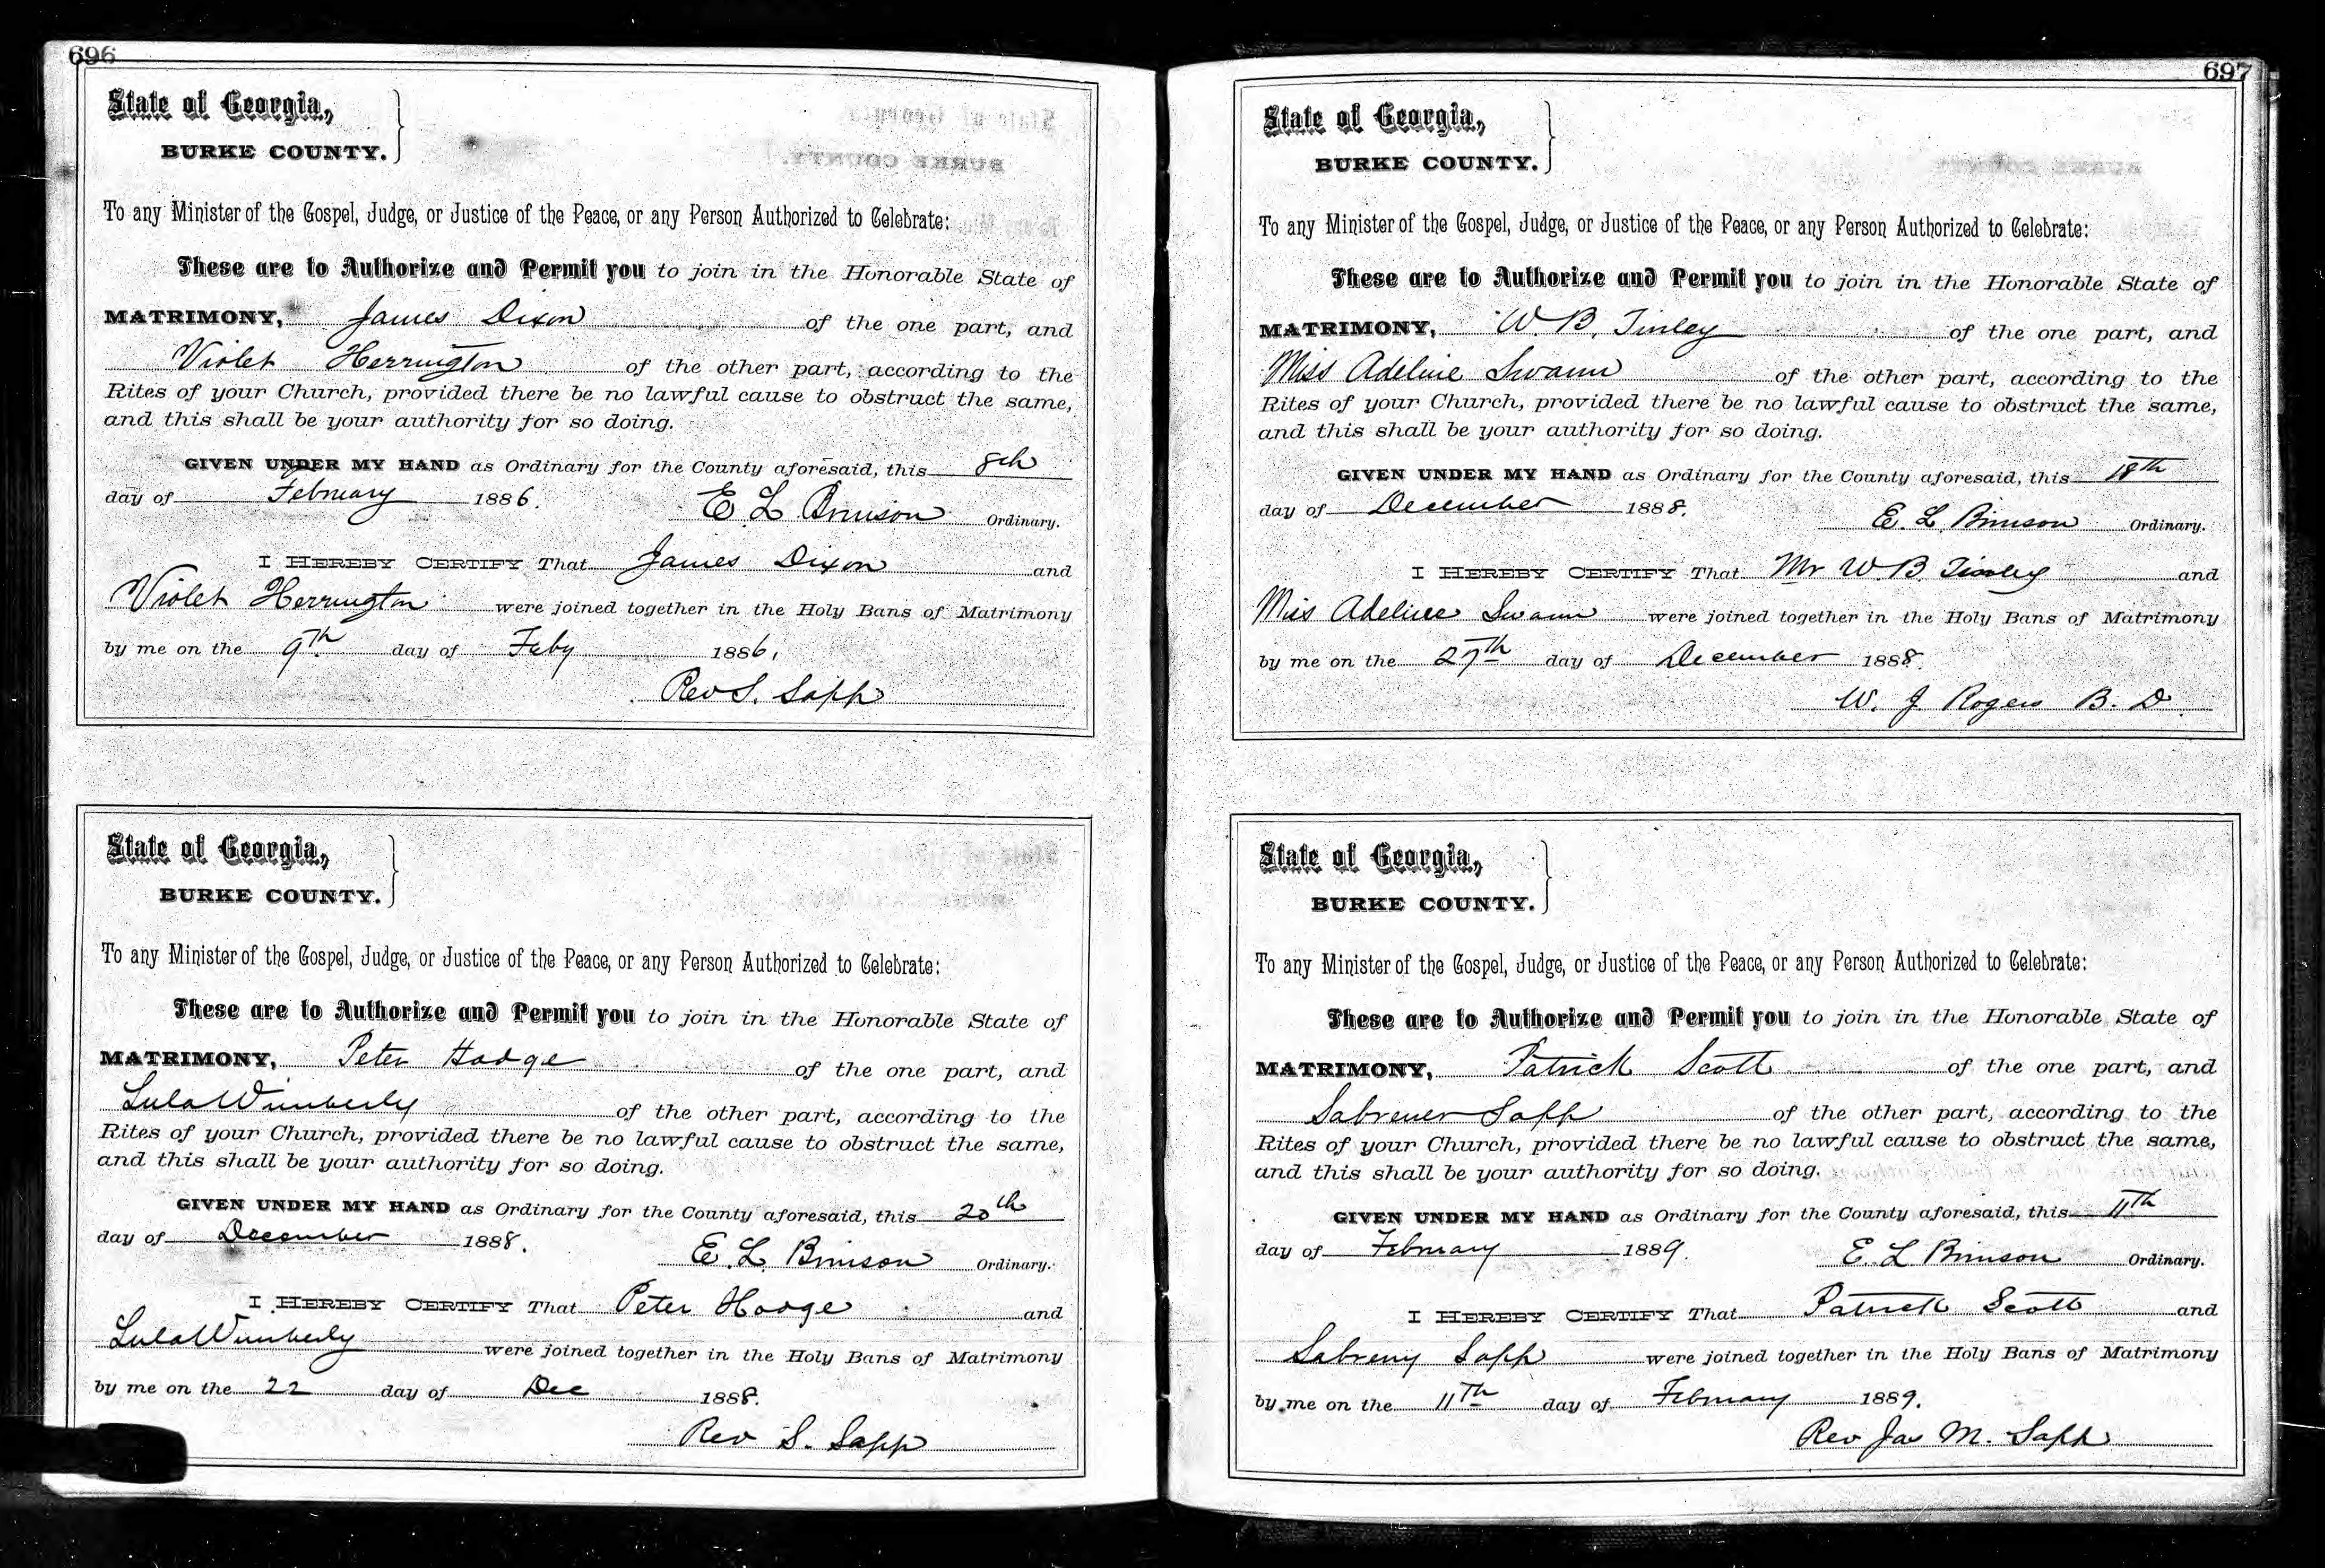 696
State of Georgia,
BURKE COUNTY.
To any Minister of the Gospel, Judge, or Justice of the Peace, or any Person Authorized to Celebrate:
These are to Authorize and Permit you to join in the Honorable State of
MATRIMONY, James Dixon of the one part, and
Violet Herrington of the other part, according to the
Rites of your Church, provided there be no lawful cause to obstruct the same,
and this shall be your authority for so doing.
GIVEN UNDER MY HAND as Ordinary for the County aforesaid, this 8th
day of February 1886.
E. L. Brinson Ordinary.
I HEREBY CERTIFY That James Dixon and
Violet Herrington were joined together in the Holy Bans of Matrimony
by me on the 9th. day of Feby 1886,
Rev S. Sapp
State of Georgia,
BURKE COUNTY.
To any Minister of the Gospel, Judge, or Justice of the Peace, or any Person Authorized to Celebrate:
These are to Authorize and Permit you to join in the Honorable State of
MATRIMONY, Peter Hodge of the one part, and
Lula Wimberly of the other part, according to the
Rites of your Church, provided there be no lawful cause to obstruct the same,
and this shall be your authority for so doing.
GIVEN UNDER MY HAND as Ordinary for the County aforesaid, this 20th
day of December 1888.
E. L. Brinson Ordinary.
I HEREBY CERTIFY That Peter Hodge and
Lula Wimberly were joined together in the Holy Bans of Matrimony
by me on the 22 day of Dec 1888.
Rev S. Sapp
697
State of Georgia,
BURKE COUNTY.
To any Minister of the Gospel, Judge, or Justice of the Peace, or any Person Authorized to Celebrate:
These are to Authorize and Permit you to join in the Honorable State of
MATRIMONY, W. B. Tinley of the one part, and
Miss Adeline Swann of the other part, according to the
Rites of your Church, provided there be no lawful cause to obstruct the same,
and this shall be your authority for so doing.
GIVEN UNDER MY HAND as Ordinary for the County aforesaid, this 18th
day of December 1888.
E. L. Brinson Ordinary.
I HEREBY CERTIFY That Mr W. B. Tinley and
Miss Adeline Swann were joined together in the Holy Bans of Matrimony
by me on the 27th day of December 1888.
W. J Rogers B. D.
State of Georgia,
BURKE COUNTY.
To any Minister of the Gospel, Judge, or Justice of the Peace, or any Person Authorized to Celebrate:
These are to Authorize and Permit you to join in the Honorable State of
MATRIMONY, Patrick Scott of the one part, and
Sabrener Sapp of the other part, according to the
Rites of your Church, provided there be no lawful cause to obstruct the same,
and this shall be your authority for so doing.
GIVEN UNDER MY HAND as Ordinary for the County aforesaid, this 11th
day of February 1889.
E. L Brinson Ordinary.
I HEREBY CERTIFY That Patrick Scott and
Sabreny Sapp were joined together in the Holy Bans of Matrimony
by me on the 11th day of February 1889.
Rev Jas M. Sapp